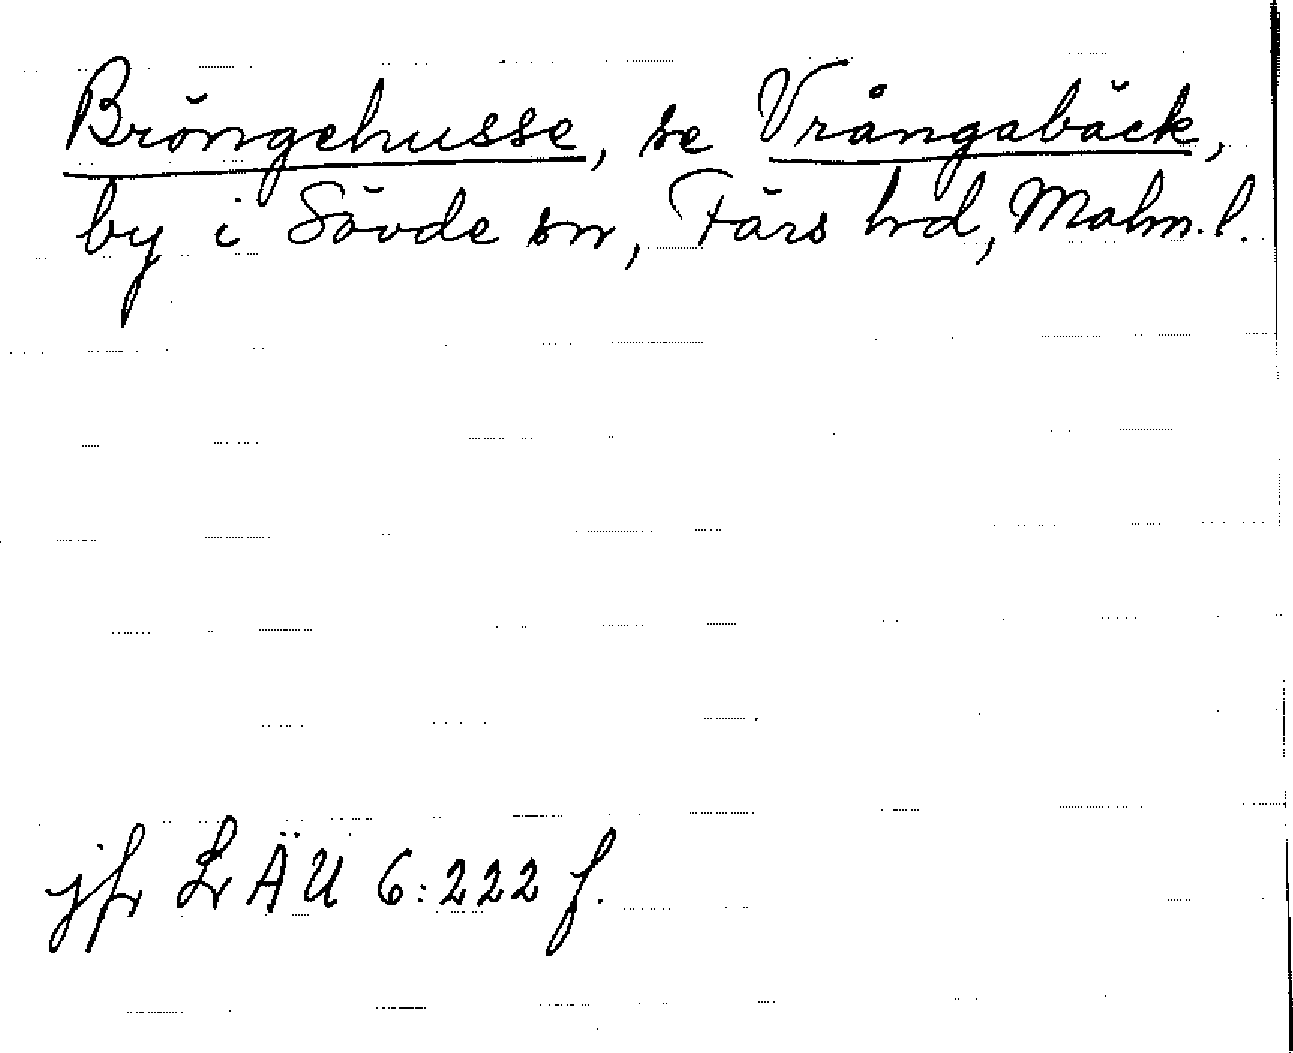 Bröngehusse, se Vrångabäck,
by i Sövde sn, Färs hd, Malm. l.
jfr LÄU 6:222 f.